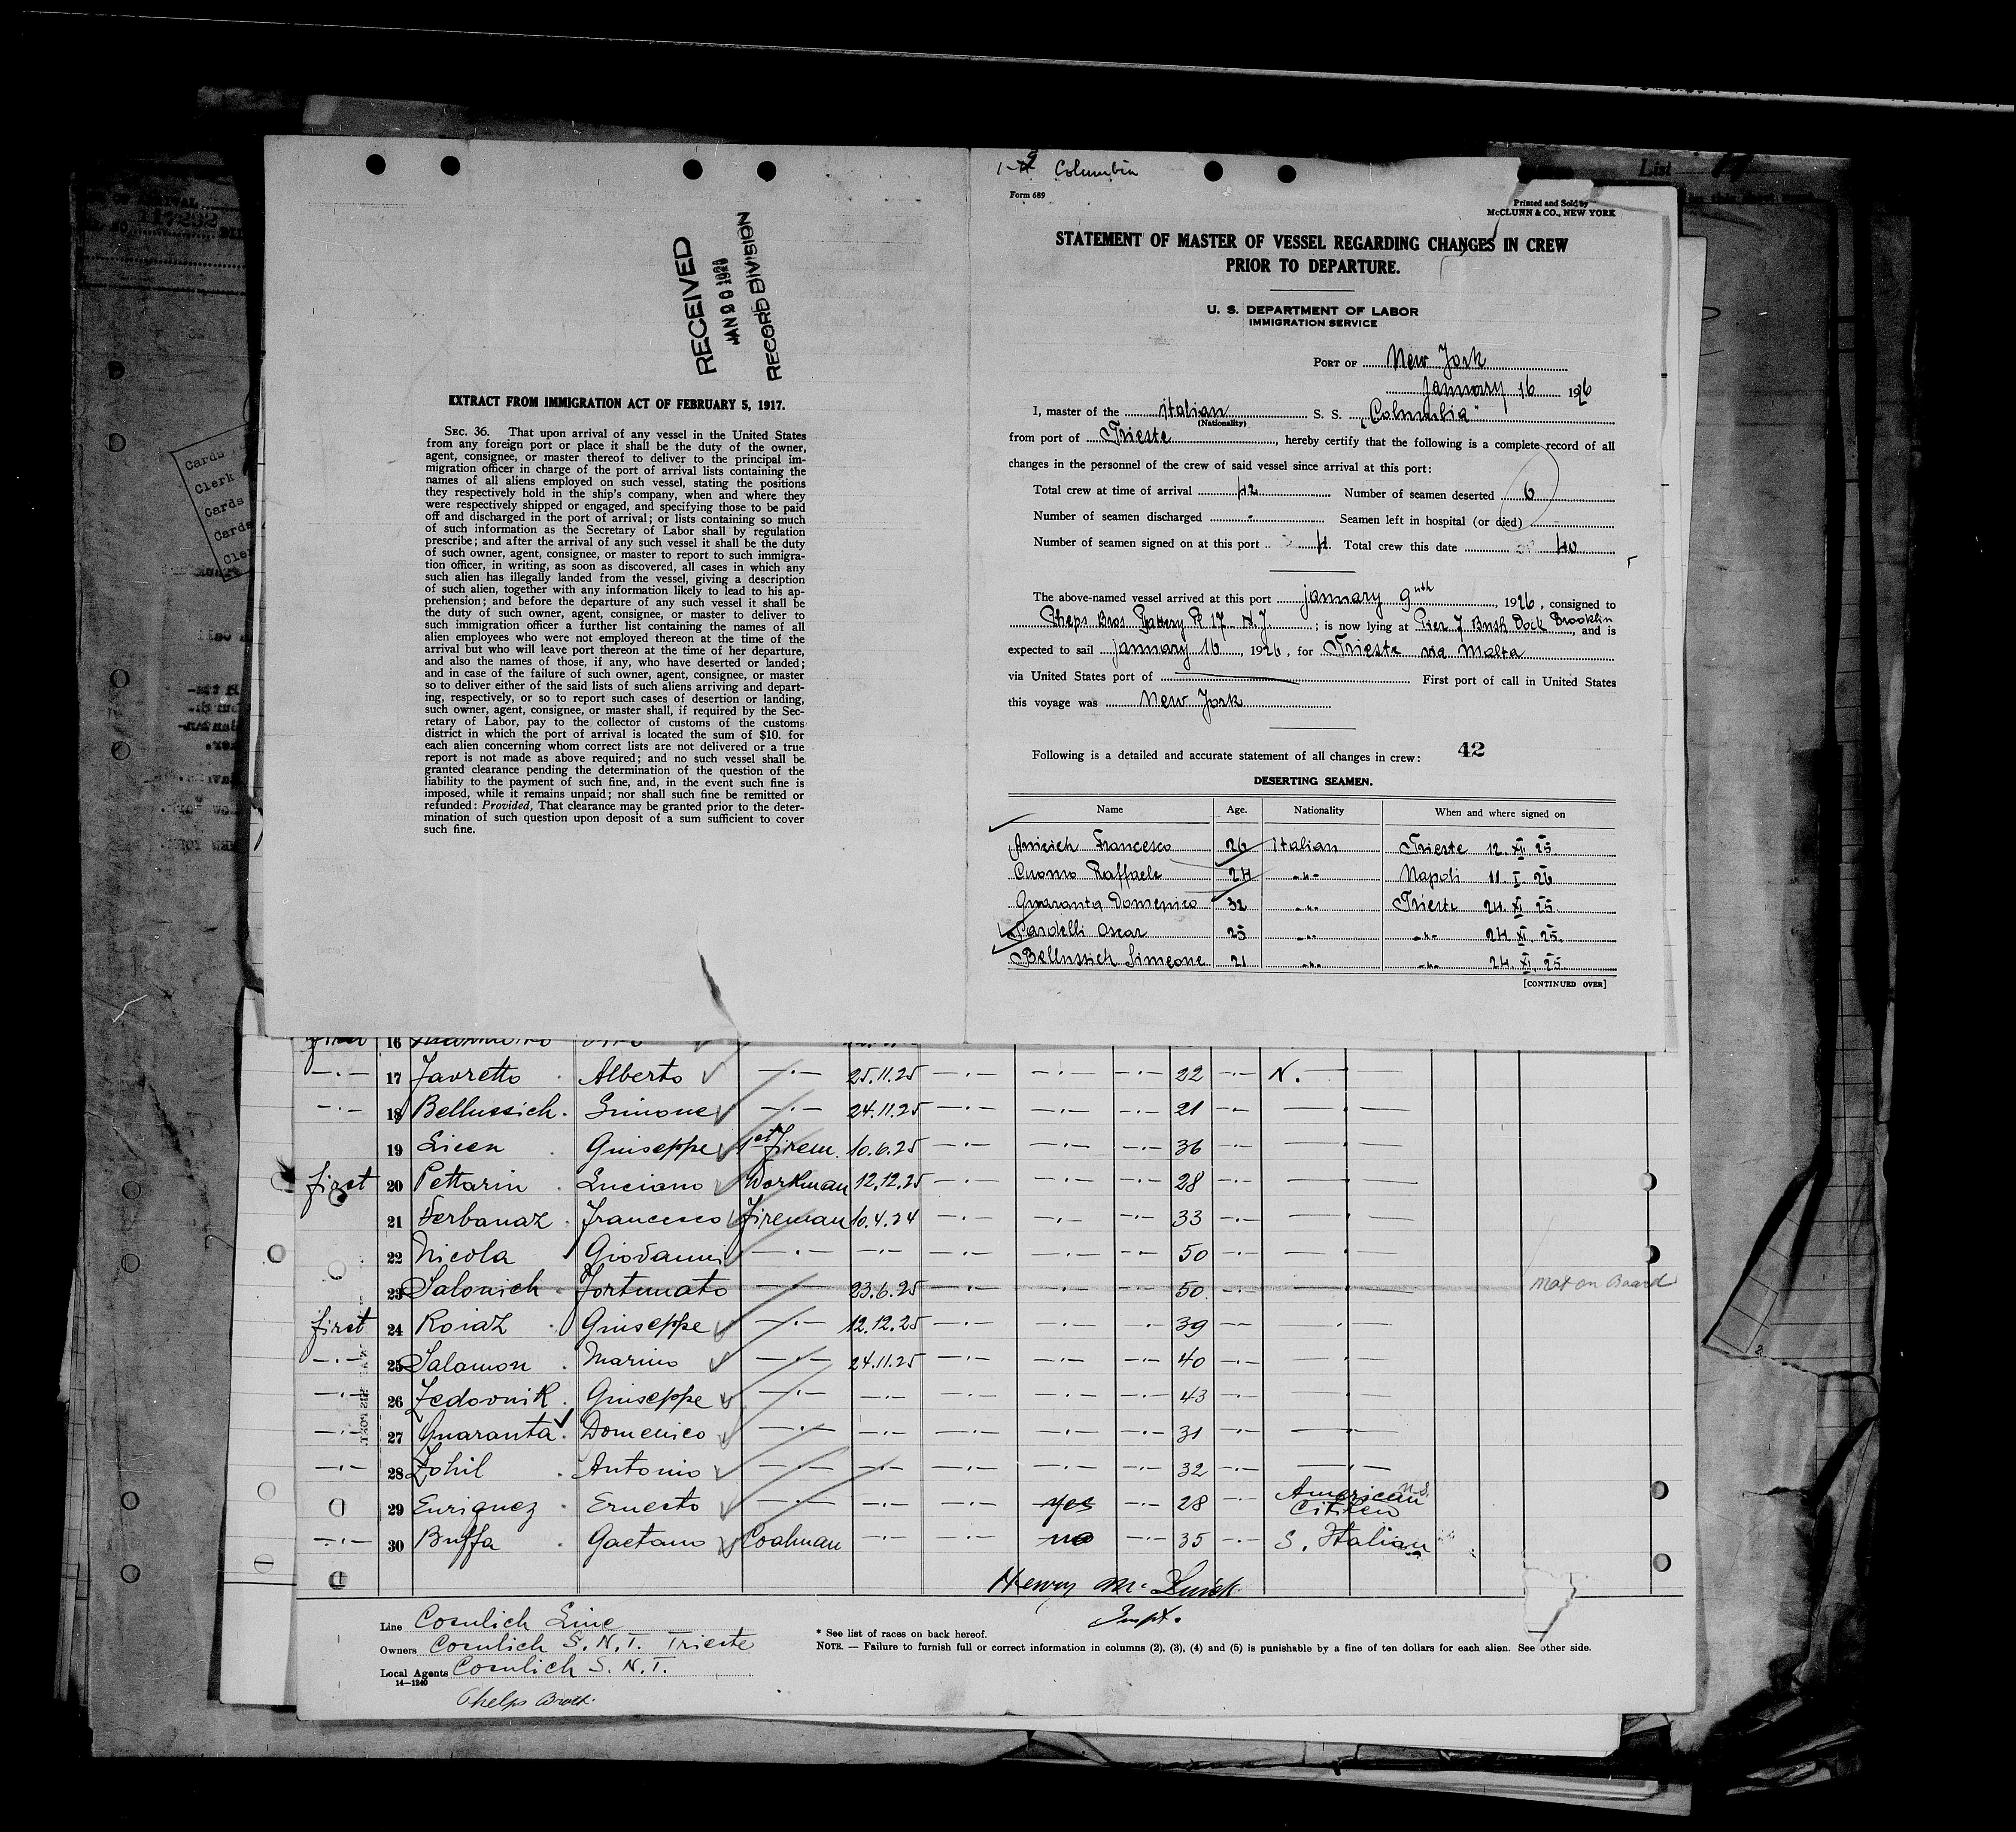 List
117292
Cards
Clerk
Cards
Cards
Cler
RECEIVED
JAN 20 1926
RECORD DIVISION
EXTRACT FROM IMMIGRATION ACT OF FEBRUARY 5, 1917.
SEC. 36. That upon arrival of any vessel in the United States
from any foreign port or place it shall be the duty of the owner,
agent, consignee, or master thereof to deliver to the principal im-
migration officer in charge of the port of arrival lists containing the
names of all aliens employed on such vessel, stating the positions
they respectively hold in the ship's company, when and where they
were respectively shipped or engaged, and specifying those to be paid
off and discharged in the port of arrival; or lists containing so much
of such information as the Secretary of Labor shall by regulation
prescribe; and after the arrival of any such vessel it shall be the duty
of such owner, agent, consignee, or master to report to such immigra-
tion officer, in writing, as soon as discovered, all cases in which any
such alien has illegally landed from the vessel, giving a description
of such alien, together with any information likely to lead to his ap-
prehension; and before the departure of any such vessel it shall be
the duty of such owner, agent, consignee, or master to deliver to
such immigration officer a further list containing the names of all
alien employees who were not employed thereon at the time of the
arrival but who will leave port thereon at the time of her departure,
and also the names of those, if any, who have deserted or landed;
and in case of the failure of such owner, agent, consignee, or master
so to deliver either of the said lists of such aliens arriving and depart-
ing, respectively, or so to report such cases of desertion or landing,
such owner, agent, consignee, or master shall, if required by the Sec-
retary of Labor, pay to the collector of customs of the customs
district in which the port of arrival is located the sum of $10. for
each alien concerning whom correct lists are not delivered or a true
report is not made as above required; and no such vessel shall be
granted clearance pending the determination of the question of the
liability to the payment of such fine, and, in the event such fine is
imposed, while it remains unpaid; nor shall such fine be remitted or
refunded: Provided, That clearance may be granted prior to the deter-
mination of such question upon deposit of a sum sufficient to cover
such fine.
Columbia
Form 689
Printed and Sold by
McCLUNN & CO., NEW YORK
STATEMENT OF MASTER OF VESSEL REGARDING CHANGES IN CREW
PRIOR TO DEPARTURE.
U. S. DEPARTMENT OF LABOR
IMMIGRATION SERVICE
PORT OF New York
January 16 1926
I, master of the italian S. S. "Columbia"
(Nationality)
from port of Trieste, hereby certify that the following is a complete record of all
changes in the personnel of the crew of said vessel since arrival at this port:
Total crew at time of arrival 42 Number of seamen deserted 6
Number of seamen discharged - Seamen left in hospital (or died)
Number of seamen signed on at this port 4. Total crew this date 40
The above-named vessel arrived at this port january 9nth, 1926, consigned to
Pheps Bros. Battery Pl 17 N.J.; is now lying at Pier 7 Bush Dock Brooklin, and is
expected to sail january 16, 1926, for Trieste via Malta
via United States port of First port of call in United States
this voyage was New York
Following is a detailed and accurate statement of all changes in crew: 42
DESERTING SEAMEN.
Name Age. Nationality When and where signed on
Anicich Francesco 26 italian Trieste 12. XII. 25
Cuomo Raffaele 24 -"- Napoli 11. I. 26
Quaranta Domenico 32 -"- Trieste 24. XI. 25.
Pardelli Oscar 25 -"- -"- 24. XI. 25.
Bellussich Simeone 21 -"- -"- 24. XI. 25.
[CONTINUED OVER]
16
17 Favretto Alberto 25.11.25 22 N.
18 Bellussich. Simone 24.11.25 21
19 Licen Guiseppe 1st Firem. 10.6.25 36
first 20 Pettarin Luciano Workman 12.12.25 28
21 Verbanaz Francesco Fireman 10.4.24 33
22 Nicola Giovanni 50
23 Salonich Fortunato 23.6.25 50 Not on Board
first 24 Roiaz Guiseppe 12.12.25 39
25 Salamon Marino 24.11.25 40
26 Zedovnik Guiseppe 43
27 Quaranta Domenico 31
28 Zohil Antonio 32
29 Enriquez Ernesto yes 28 American Citizen
30 Buffa Gaetano Coalman no 35 S. Italian
Henry Mc Quick
Inspt.
Line Cosulich Line
Owners Cosulich S.N.T. Trieste
Local Agents Cosulich S.N.T.
14—1240
Phelps Broth.
* See list of races on back hereof.
NOTE. — Failure to furnish full or correct information in columns (2), (3), (4) and (5) is punishable by a fine of ten dollars for each alien. See other side.